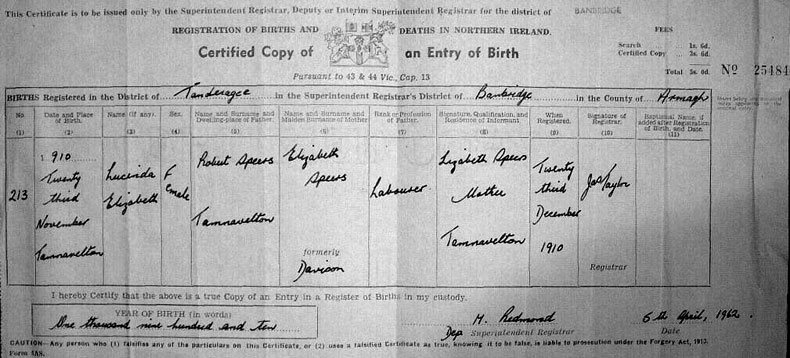 This Certificate is to be issued only by the Superintendent Registrar, Deputy or Interim Superintendent Registrar for the district of BANBRIDGE
REGISTRATION OF BIRTHS AND DEATHS IN NORTHERN IRELAND.
Certified Copy of an Entry of Birth
Pursuant to 43 & 44 Vic., Cap. 13
FEES
Search 1s. 6d.
Certified Copy 3s. 6d.
Total 5s. 0d.
No 25484
BIRTHS Registered in the District of Tanderagee in the Superintendent Registrar's District of Banbridge in the County of Armagh
No. (1)
Date and Place of Birth. (2)
Name (if any). (3)
Sex. (4)
Name and Surname and Dwelling-place of Father. (5)
Name and Surname and Maiden Surname of Mother (6)
Rank or Profession of Father. (7)
Signature, Qualification, and Residence of Informant. (8)
When Registered. (9)
Signature of Registrar. (10)
Baptismal Name, if added after Registration of Birth, and Date. (11)
213
1910
Twenty
third
November
Tamnavelton
Lucinda
Elizabeth
F
emale
Robert Speers
Tamnavelton
Elizabeth
Speers
formerly
Davison
Labourer
Lizabeth Speers
Mother
Tamnavelton
Twenty
third
December
1910
Jas Taylor
Registrar
I hereby Certify that the above is a true Copy of an Entry in a Register of Births in my custody.
YEAR OF BIRTH (in words)
One thousand nine hundred and ten
H. Redmond
Dep Superintendent Registrar
6th April, 1962.
Date
CAUTION—Any person who (1) falsifies any of the particulars on this Certificate, or (2) uses a falsified Certificate as true, knowing it to be false, is liable to prosecution under the Forgery Act, 1913.
Form 1AS.